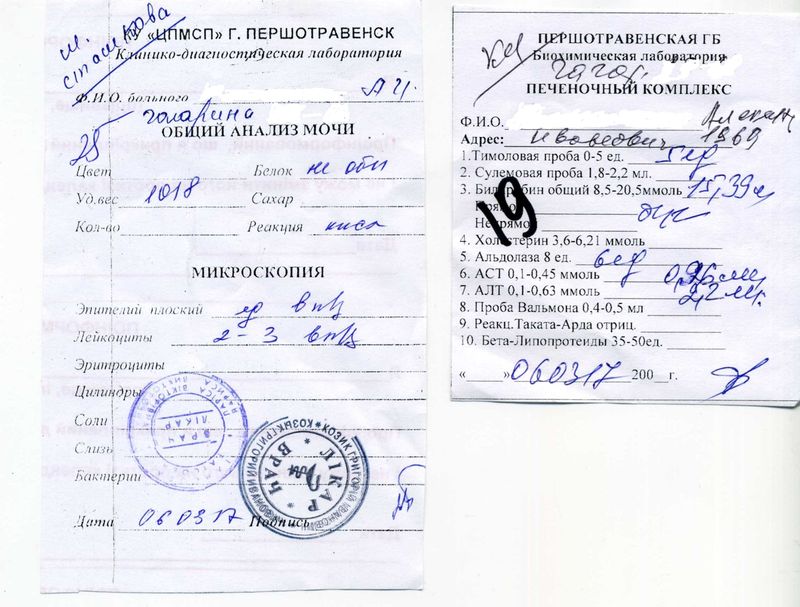 КУ «ЦПМСП» Г. ПЕРШОТРАВЕНСК
Клинико-диагностическая лаборатория
Ф.И.О. больного
ОБЩИЙ АНАЛИЗ МОЧИ
Цвет Белок не обн
Уд.вес 1018 Сахар
Кол-во Реакция кисл
МИКРОСКОПИЯ
Эпителий плоский ед в п/з
Лейкоциты 2-3 в п/з
Эритроциты
Цилиндры
Соли
Слизь
Бактерии
Дата 060317 Подпись
ВРАЧ
ЛІКАР
КОЗИК ГРИГОРІЙ ІВАНОВИЧ
ЛІКАР
ВРАЧ
ПЕРШОТРАВЕНСКАЯ ГБ
Биохимическая лаборатория
ПЕЧЕНОЧНЫЙ КОМПЛЕКС
Ф.И.О.
Адрес: 1969
1.Тимоловая проба 0-5 ед. 5 ед
2. Сулемовая проба 1,8-2,2 мл.
3. Билирубин общий 8,5-20,5ммоль 15,39
Прямой
Непрямой
19
4. Холестерин 3,6-6,21 ммоль
5. Альдолаза 8 ед. 6 ед
6. АСТ 0,1-0,45 ммоль
7. АЛТ 0,1-0,63 ммоль
8. Проба Вальмона 0,4-0,5 мл
9. Реакц.Таката-Ара отриц.
10. Бета-Липопротеиды 35-50ед.
« » 060317 200 г.